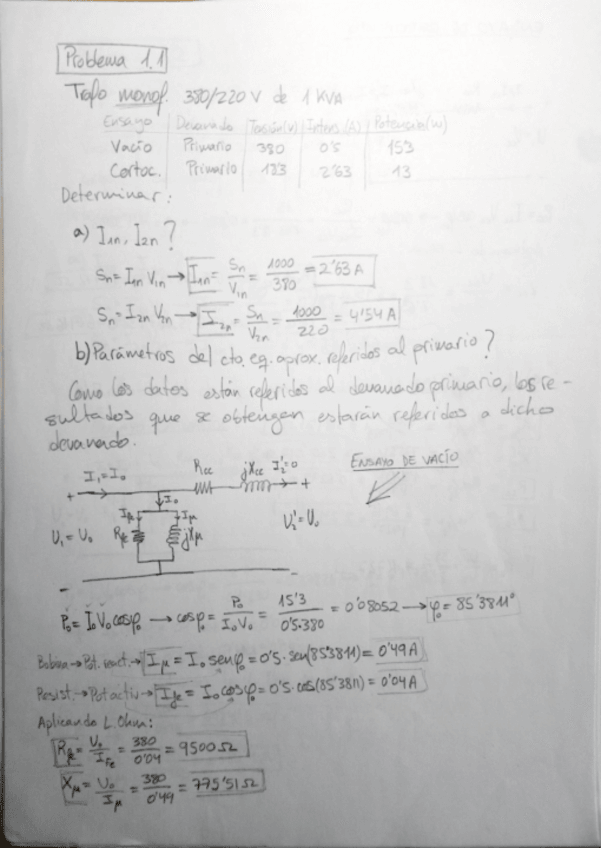 Problema 1.1
Trafo monof. 380/220 V de 1 KVA
Ensayo Devanado Tensión(V) Intens.(A) Potencia(W)
Vacío Primario 380 0'5 15'3
Cortoc. Primario 13'3 2'63 13
Determinar:
a) I1n, I2n ?
Sn = I1n V1n → I1n = Sn/V1n = 1000/380 = 2'63 A
Sn = I2n V2n → I2n = Sn/V2n = 1000/220 = 4'54 A
b) Parámetros del cto. eq. aprox. referidos al primario ?
Como los datos están referidos al devanado primario, los re-
sultados que se obtengan estarán referidos a dicho
devanado.
I1 = I0 Rcc jXcc I2' = 0 ENSAYO DE VACÍO
+ I0 +
Ife Iμ
U1 = U0 Rfe jXμ U2' = U0
- -
P0 = I0 V0 cosφ0 → cosφ = P0/(I0 V0) = 15'3/(0'5·380) = 0'08052 → φ0 = 85'3811°
Bobina → Pot. react. → Iμ = I0 senφ0 = 0'5 · sen(85'3811) = 0'49 A
Resist. → Pot activ → Ife = I0 cosφ0 = 0'5 · cos(85'3811) = 0'04 A
Aplicando L. Ohm:
Rfe = U0/IFe = 380/0'04 = 9500 Ω
Xμ = U0/Iμ = 380/0'49 = 775'51 Ω